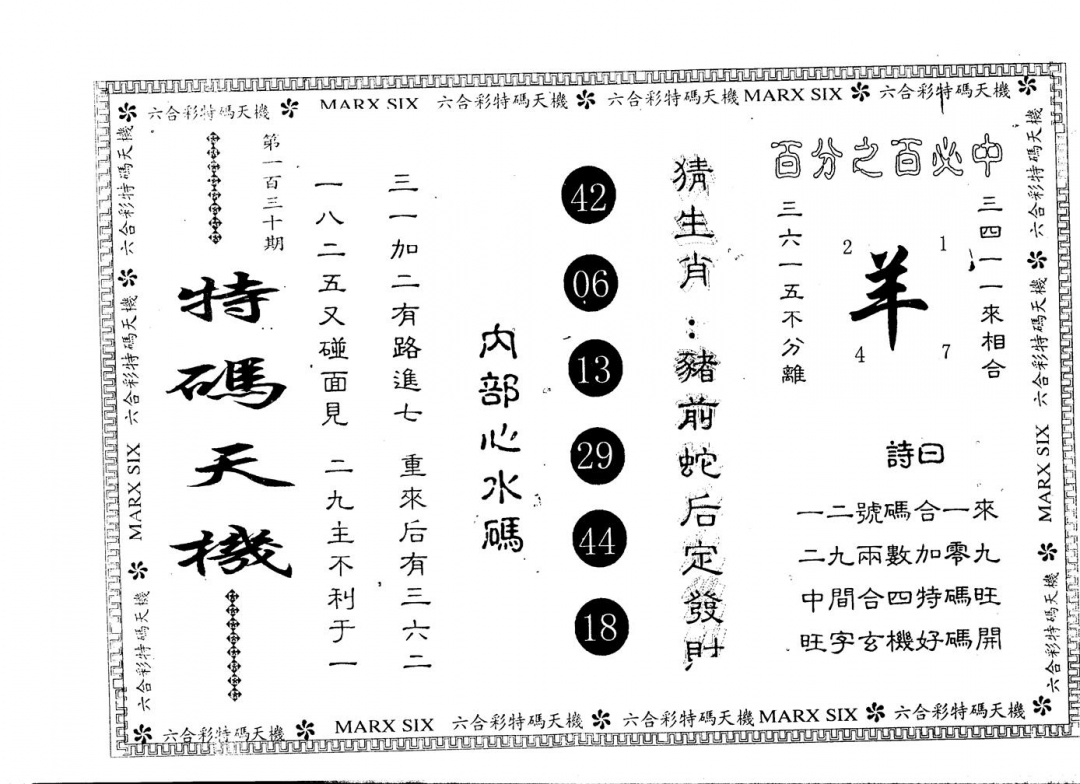 六合彩特碼天機 MARX SIX 六合彩特碼天機 六合彩特碼天機 MARX SIX 六合彩特碼天機
百分之百必中
三四一一來相合
1
7
羊
2
4
三六一五不分離
詩曰
一二號碼合一來
二九兩數加零九
中間合四特碼旺
旺字玄機好碼開
猜生肖：豬前蛇后定發財
42
06
13
29
44
18
內部心水碼
三一加二有路進七 重來后有三六二
一八二五又碰面見 二九主不利于一
第一百三十期
特碼天機
六合彩特碼天機 六合彩特碼天機 MARX SIX 六合彩特碼天機
六合彩特碼天機 六合彩特碼天機 MARX SIX 六合彩特碼天機
六合彩特碼天機 MARX SIX 六合彩特碼天機 六合彩特碼天機 MARX SIX 六合彩特碼天機